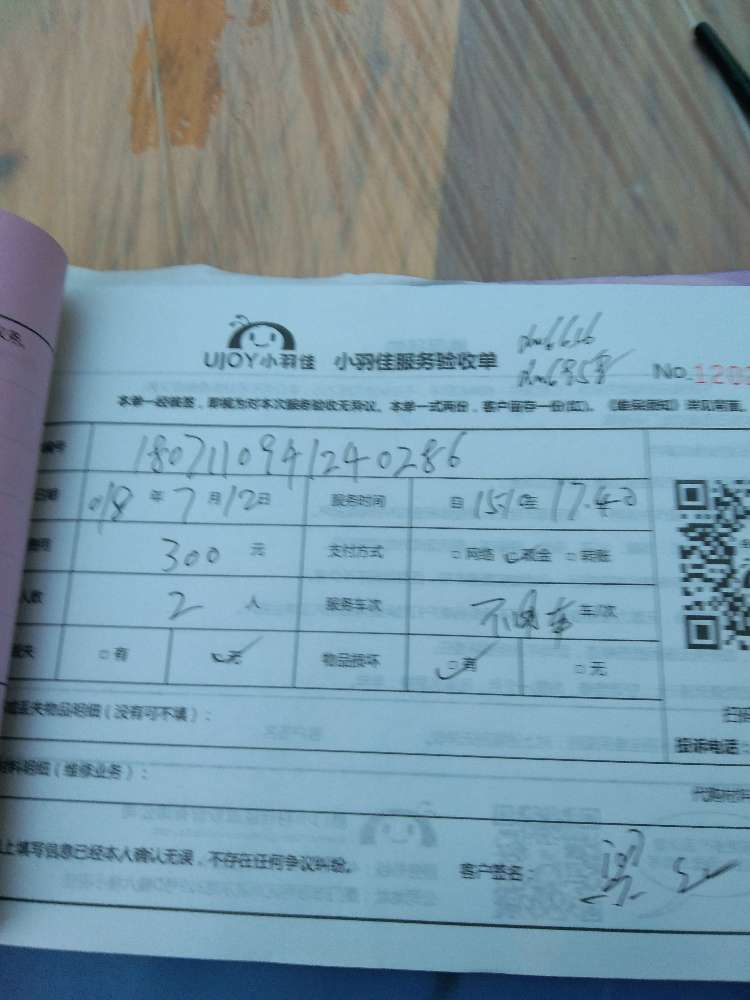 UJOY小羽佳 小羽佳服务验收单
dm6616
dm6858
No.1202
本单一经核签，即视为对本次服务验收无异议。本单一式两份，客户留存一份(红)。《维保须知》详见背面。
编号 1807110941240286
日期 018 年 7 月 12 日 服务时间 自 15:10 至 17:40
300 元 支付方式 □网络 ☑现金 □转账
人数 2 人 服务车次 不用车 车/次
□有 ☑无 物品损坏 ☑有 □无
丢失物品明细（没有可不填）：
扫描
投诉电话：
材料明细（维修业务）：
代购材料
上填写信息已经本人确认无误，不存在任何争议纠纷。 客户签名：